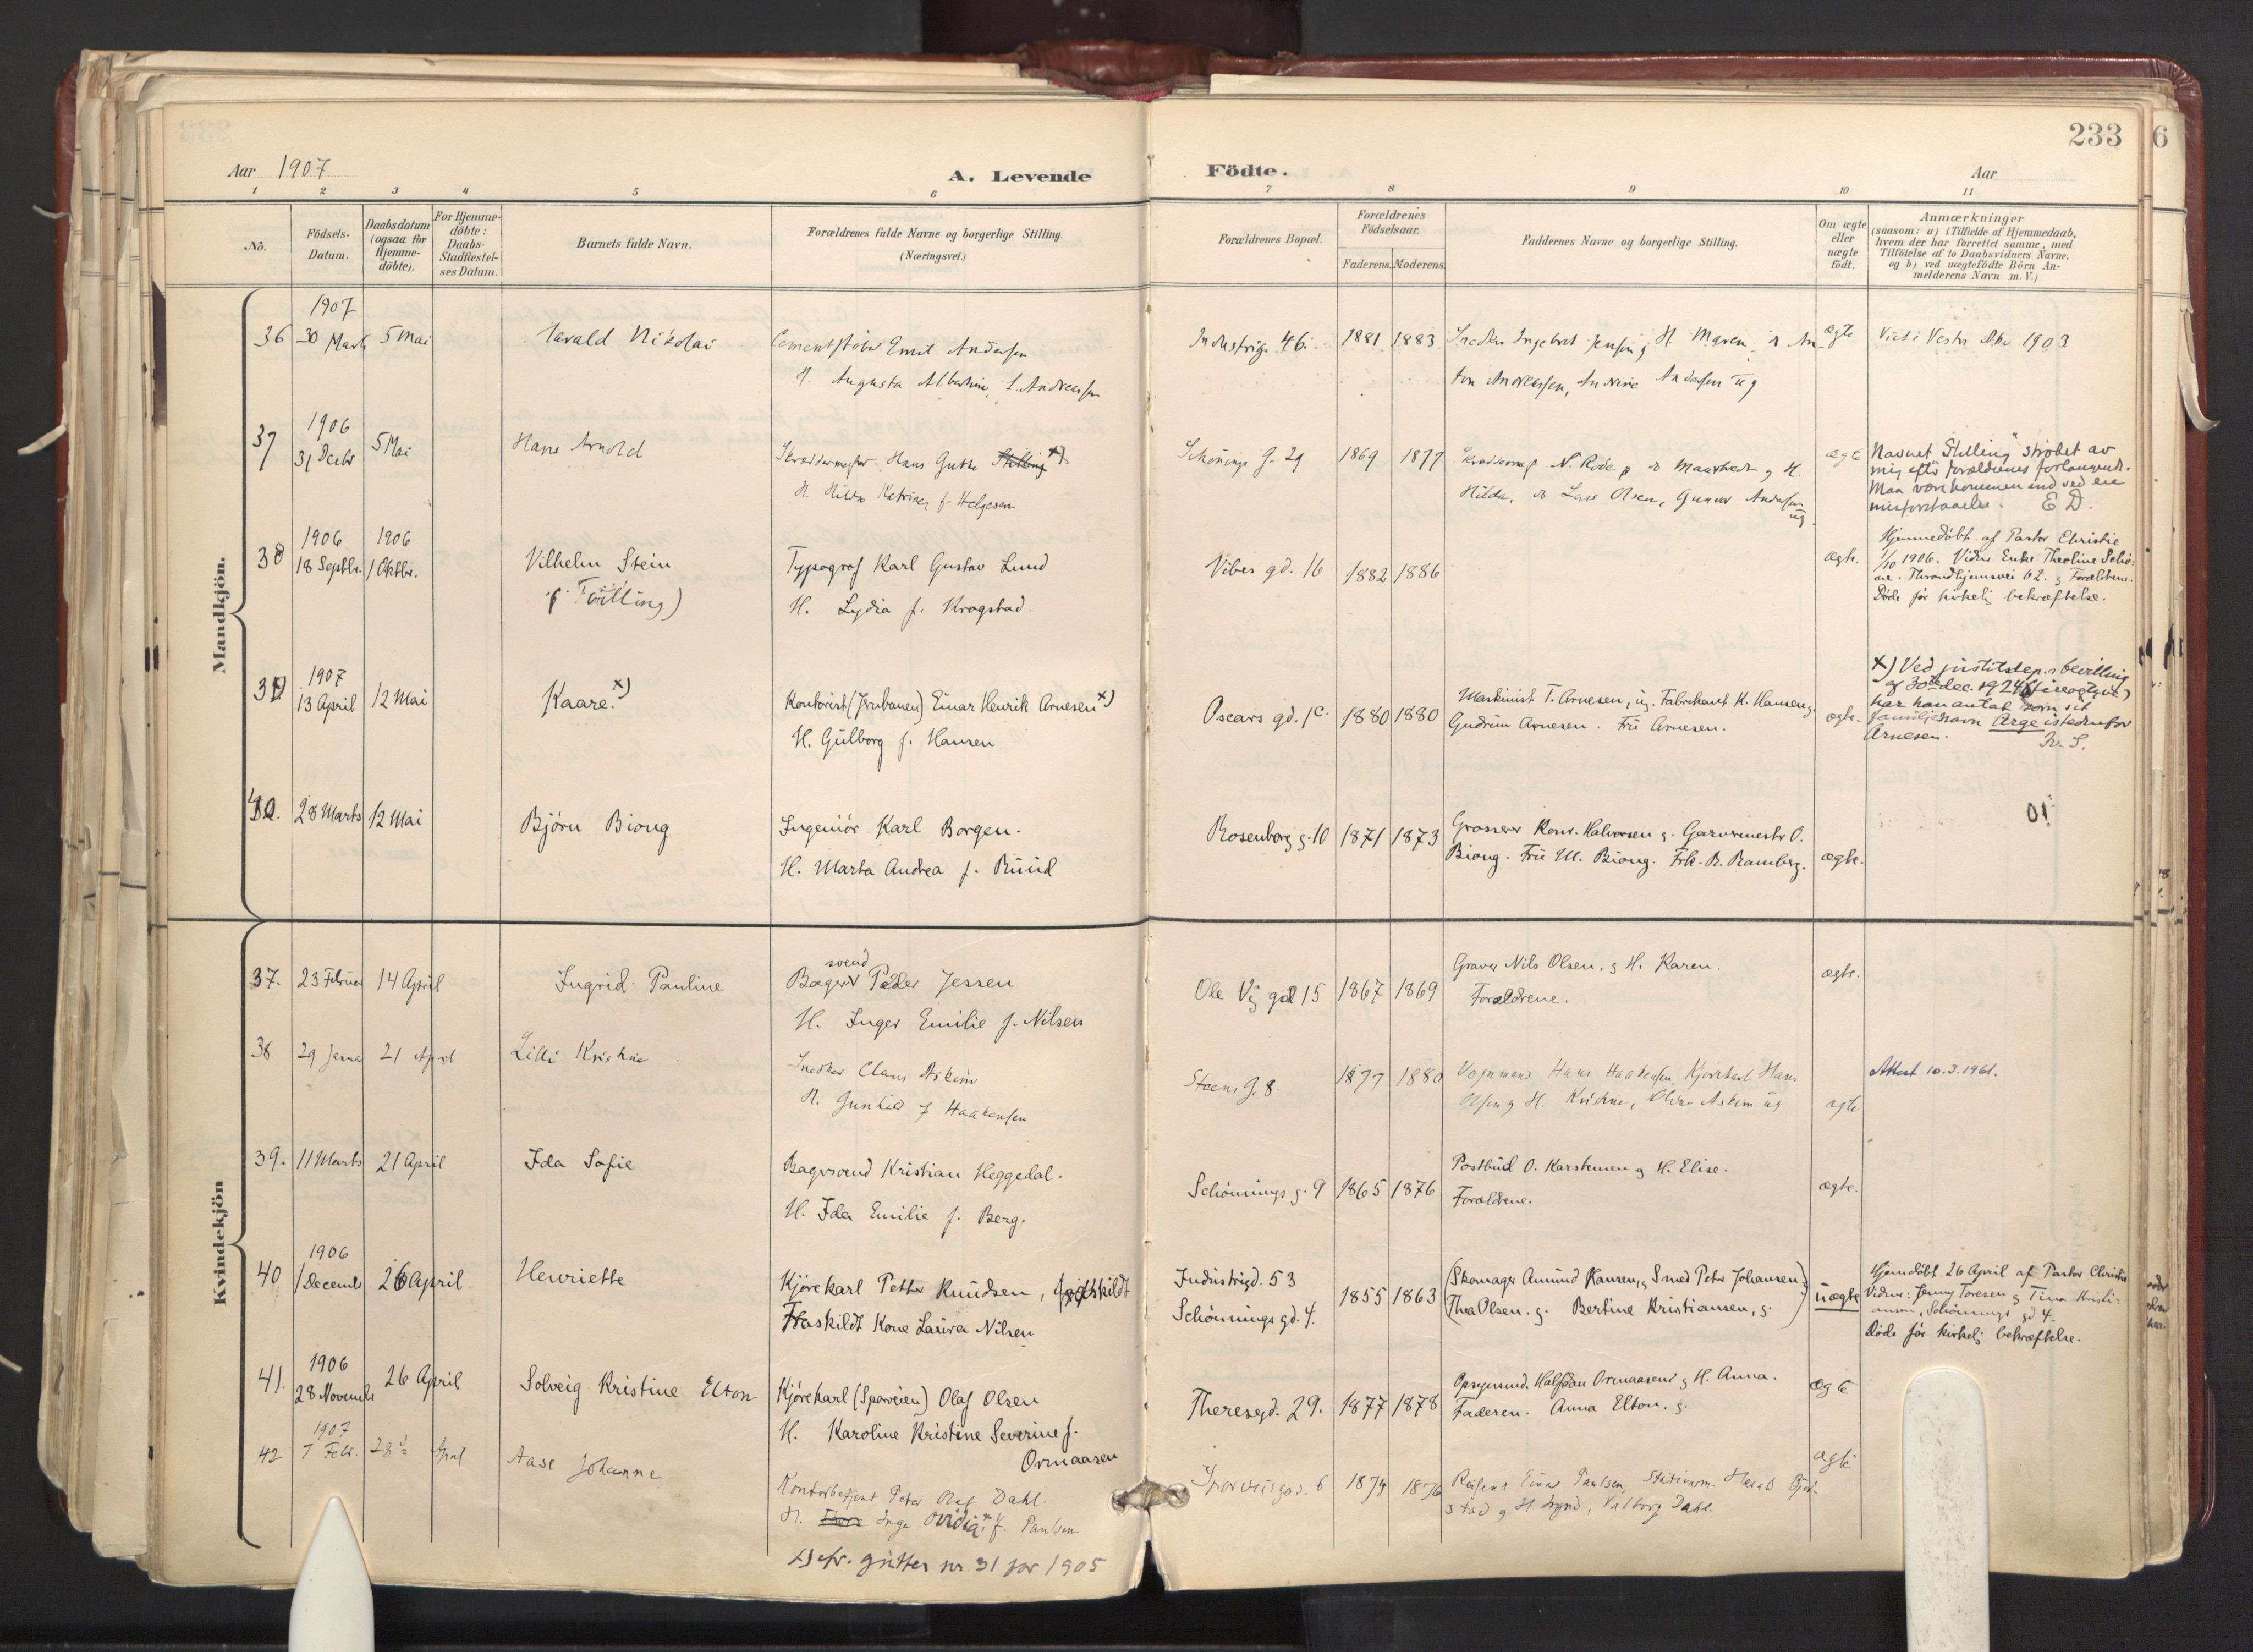 233
6
Aar 1907
A. Levende
Födte.
Aar
1 2 3 4 5 6 7 8 9 10 11
Nö.
Födsels-
Datum.
Daabsdatum
(ogsaa for
Hjemme-
döbte).
For Hjemme-
döbte:
Daabs-
Stadfæstel-
ses Datum.
Barnets fulde Navn.
Forældrenes fulde Navne og borgerlige Stilling.
(Næringsvei.)
Forældrenes Bopæl.
Forældrenes
Födselsaar.
Faderens. Moderens.
Faddernes Navne og borgerlige Stilling.
Om ægte
eller
uægte
födt.
Anmærkninger
(saasom: a) i Tilfælde af Hjemmedaab,
hvem der har forrettet samme, med
Tilföielse af to Daabsvidners Navne,
og b) ved uægtefödte Börn An-
melderens Navn m. V.)
Mandkjön.
1907
36 30 Marts 5 Mai
Harald Nikolai
Cementstøber Emil Andersen
H. Augusta Albertine f. Andreassen
Industrig. 46. 1881 1883
Snedker Ingebret Jensen g H. Maren,
Andreassen, Andersen ug
ægte
Viet i Vestre 1903
1906
37 31 Decbr 5 Mai
Hans Arnold
Skræddermester Hans Stilling x)
H. Hilda Katrine f. Helgesen.
Schønings g. 29 1869 1877
N. Rode g H.
Hilda, Lars Olsen, Gunvor Andersen
ug.
ægte
Navnet "Stilling" strøket av
mig efter forældrenes forlangende.
Maa være kommen ind ved en
misforstaaelse. E D.
1906 1906
38 18 Septbr. 1 Oktbr.
Vilhelm Stein
(Tvilling)
Typograf Karl Gustav Lund
H. Lydia f. Krogstad.
Vibes gd. 16 1882 1886
ægte.
Hjemmedøbt af Pastor Christie
1/10 1906. Vidner Enke Theoline
Throndhjemsvei 62. g Forældrene.
Døde før kirkelig bekræftelse.
1907
39 13 April 12 Mai
Kaare. x)
Kontorist (Jernbanen) Einar Henrik Arnesen x)
H. Gulborg f. Hansen
Oscars gd. 1c. 1880 1880
Maskinist T. Arnesen, ug. Fabrikant K. Hansen g.
Gudrun Arnesen. Fru Arnesen.
ægte.
x) Ved justitsdep.s bevilling
af 30te dec. 1924 (fireogtyve)
har han antat som sit
familienavn Arge istedenfor
Arnesen. Fr. S.
40. 28 Marts 12 Mai
Bjørn Biong
Ingeniør Karl Borgen.
H. Marta Andrea f. Ruud
Rosenborg g. 10 1871 1873
Grosserer Konr. Halvorsen g. Garvermester O.
Biong. Fru M. Biong. Frk. R. Ramberg.
ægte.
01
Kvindekjön
37. 23 Februar 14 April
Ingrid Pauline
svend
Bager Peder Jessen
H. Inger Emilie f. Nilsen
Ole Vig gd 15 1867 1869
Graver Nils Olsen, g H. Karen.
Forældrene.
ægte.
38 29 Janua 21 April
Lilli Kristine
Snedker Claus Askim
H. Gunhild f Haakensen
Steens g. 8 1877 1880
Vognmand Hans Haakensen, Kjørekarl Hans
Olsen g H. Kristine, Askim ug
ægte
Attest 10.3.1961.
39. 11 Marts 21 April
Ida Sofie
Bagersvend Kristian Heggedal.
H. Ida Emilie f. Berg.
Schønnings g. 9 1865 1876
Postbud O. Karstensen g H. Elise.
Forældrene.
ægte.
1906
40 1 December 26 April
Henriette
Kjørekarl Petter Knudsen, fraskildt
Fraskildt Kone Laura Nilsen
Industrigd. 53
Schønnings gd. 4. 1855 1863
(Skomager Amund Hansen, g Smed Peter Johansen)
(Thea Olsen. g. Bertine Kristiansen, g.)
uægte
Hjemdøbt 26 April af Pastor Christie
Vidner: Jenny Toresen g Tina Kristi-
ansen, Schønnings gd 4.
Døde før kirkelig bekræftelse.
1906
41. 28 November 26 April
Solveig Kristine Elton
Kjørekarl (Sporveien) Olaf Olsen
H. Karoline Kristine Severine f.
Ormaasen
Theresegd. 29. 1877 1878
Opsynsmd. Halfdan Ormaasen g H. Anna.
Faderen. Anna Elton. g.
ægte
1907
42 7 Febr. 28de April
Aase Johanne
Kontorbetjent Peter Olaf Dahl.
H. Inga Ovidia x f. Paulsen.
6 1874 1876
Einar Paulsen, Harald
stad g H Valborg Dahl.
ægte
x) cfr. gutter nr 31 for 1905